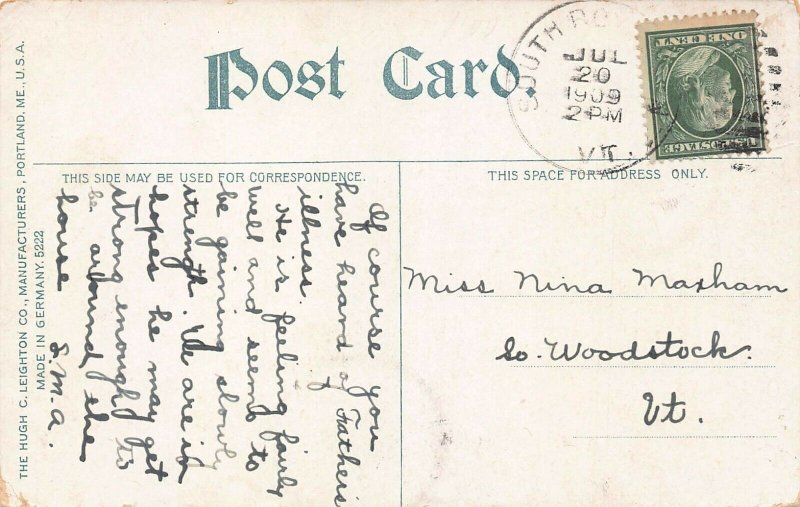 Post Card.
SOUTH
JUL
20
1909
2 PM
VT.
ONE CENT
U.S. POSTAGE
THIS SIDE MAY BE USED FOR CORRESPONDENCE.
THIS SPACE FOR ADDRESS ONLY.
THE HUGH C. LEIGHTON CO., MANUFACTURERS, PORTLAND, ME., U.S.A.
MADE IN GERMANY. 5222
Of course you
have heard of Father's
illness.
He is feeling fairly
well and seems to
be gaining slowly
strength. We are in
hopes he may get
strong enough to
be around the
house
S.M.A.
Miss Nina Maxham
So. Woodstock.
Vt.